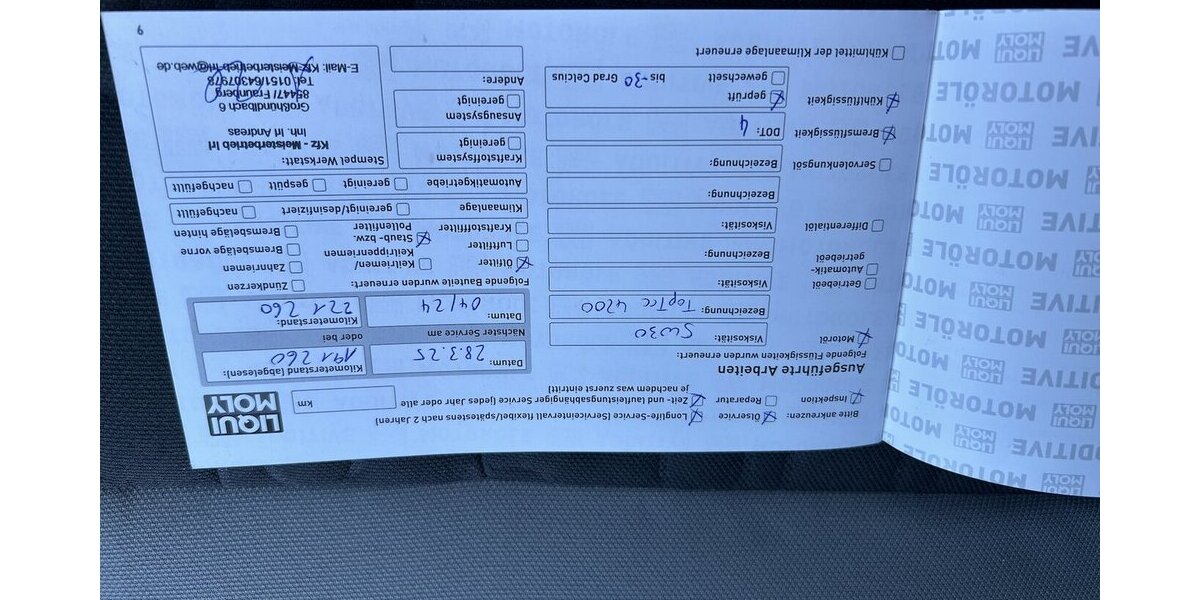 LIQUI MOLY
Bitte ankreuzen:
Ölservice
Longlife-Service (Serviceintervall flexibel/spätestens nach 2 Jahren)
Inspektion
Reparatur
Zeit- und laufleistungsabhängiger Service (jedes Jahr oder alle
km
je nachdem was zuerst eintritt)
Ausgeführte Arbeiten
Folgende Flüssigkeiten wurden erneuert:
Motoröl
Viskosität: 5W30
Bezeichnung: TopTec 4200
Getriebeöl
Viskosität:
Automatik-
getriebeöl
Bezeichnung:
Differentialöl
Viskosität:
Bezeichnung:
Servolenkungsöl
Bezeichnung:
Bremsflüssigkeit
DOT: 4
Kühlflüssigkeit
geprüft
gewechselt
bis -30 Grad Celcius
Kühlmittel der Klimaanlage erneuert
Datum: 28.3.25
Kilometerstand (abgelesen): 191 260
Nächster Service am
oder bei
Datum: 04/24
Kilometerstand: 221 260
Folgende Bauteile wurden erneuert:
Ölfilter
Keilriemen/
Keilrippenriemen
Zündkerzen
Luftfilter
Zahnriemen
Kraftstofffilter
Staub- bzw.
Pollenfilter
Bremsbeläge vorne
Bremsbeläge hinten
Klimaanlage
gereinigt/desinfiziert
nachgefüllt
Automatikgetriebe
gereinigt
gespült
nachgefüllt
Kraftstoffsystem
gereinigt
Ansaugsystem
gereinigt
Andere:
Stempel Werkstatt:
Kfz - Meisterbetrieb Irl
Inh. Irl Andreas
Großhündlbach 6
85447/ Fraunberg
Tel. 0151/64307978
E-Mail: Kfz-Meisterbetrieb-Irl@web.de
9
LIQUI MOLY
MOTORÖLE
ADDITIVE